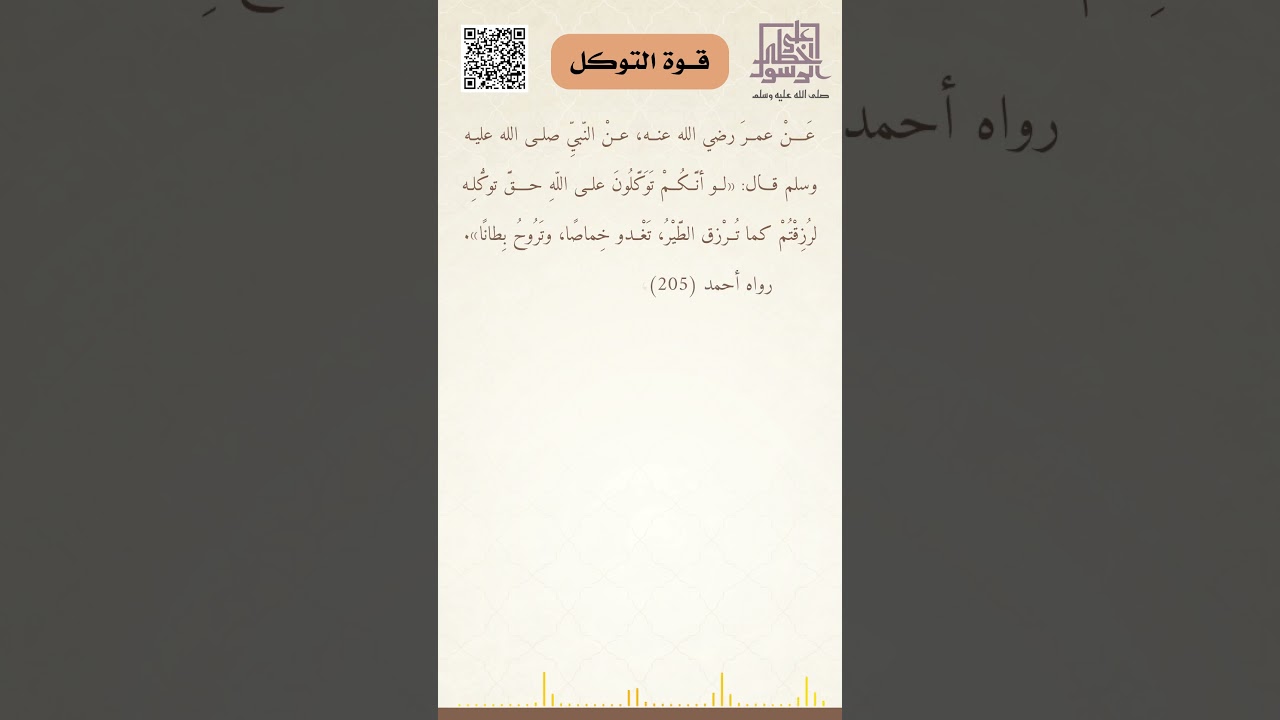 على خطى الرسول
صلى الله عليه وسلم
قـوة التوكل
عَـــنْ عمــرَ رضي الله عنــه، عــنْ النّبيِّ صلــى الله عليــه
وسلم قــال: «لــو أنّكُــمْ تَوَكّلُونَ علــى اللّهِ حـــقّ توكُّلِــه
لرُزِقْتُمْ كما تُــرْزق الطّيْرُ، تَغْــدو خِماصًا، وتَرُوحُ بِطانًا».
رواه أحمد (205)
رواه أحمد